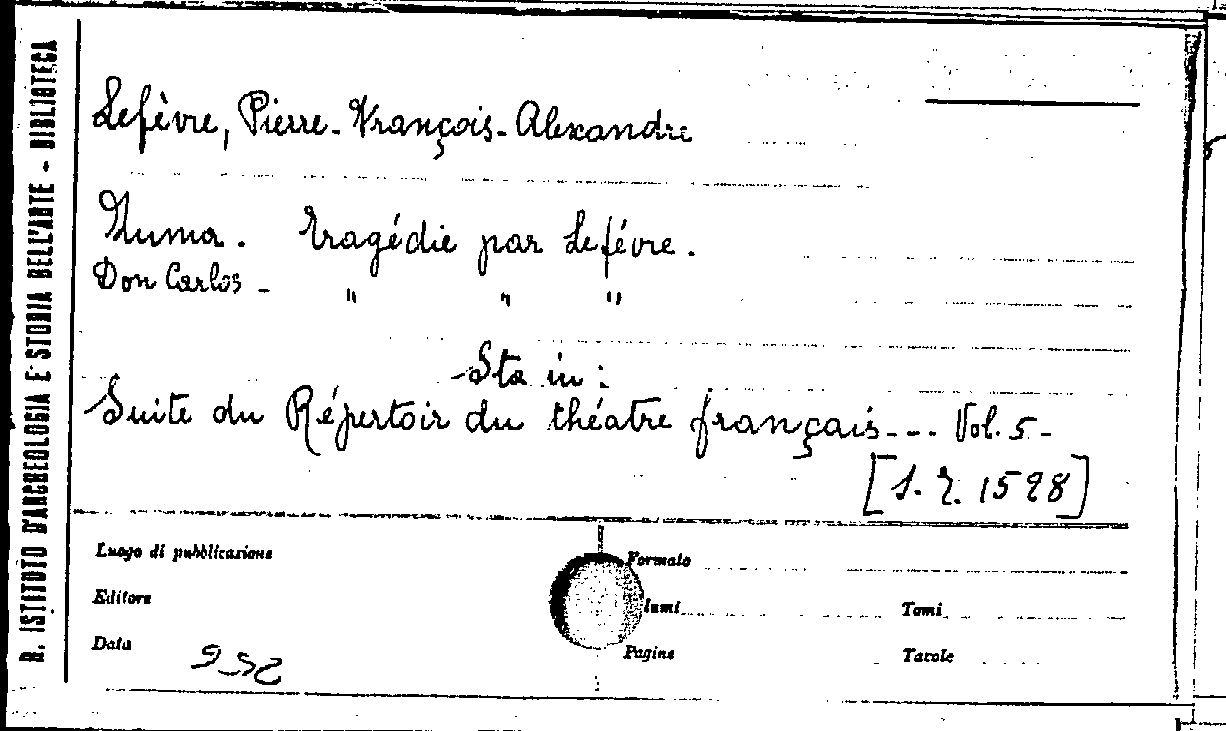 R. ISTITUTO D'ARCHEOLOGIA E STORIA DELL'ARTE - BIBLIOTECA
Lefèvre, Pierre-François-Alexandre
Numa. Tragédie par Lefévre.
Don Carlos - " " "
Sta in:
Suite du Répertoir du théatre français... Vol. 5 -
[S. R. 1598]
Luogo di pubblicazione
Formato
Editore
lumi
Tomi
Data
Pagine
Tavole